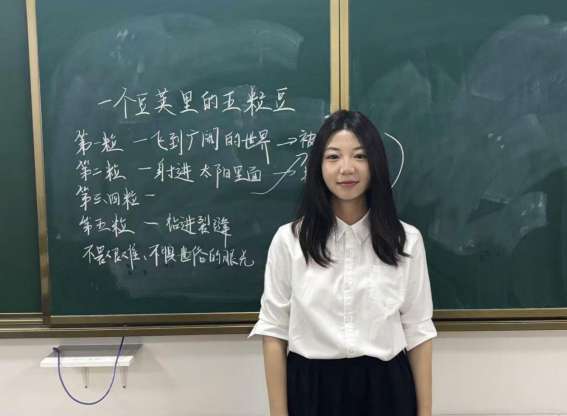 一个豆荚里的五粒豆
第一粒 一飞到广阔的世界→被
第二粒 一射进太阳里面
第三四粒一
第五粒 一钻进裂缝
不畏艰难、不惧世俗的眼光